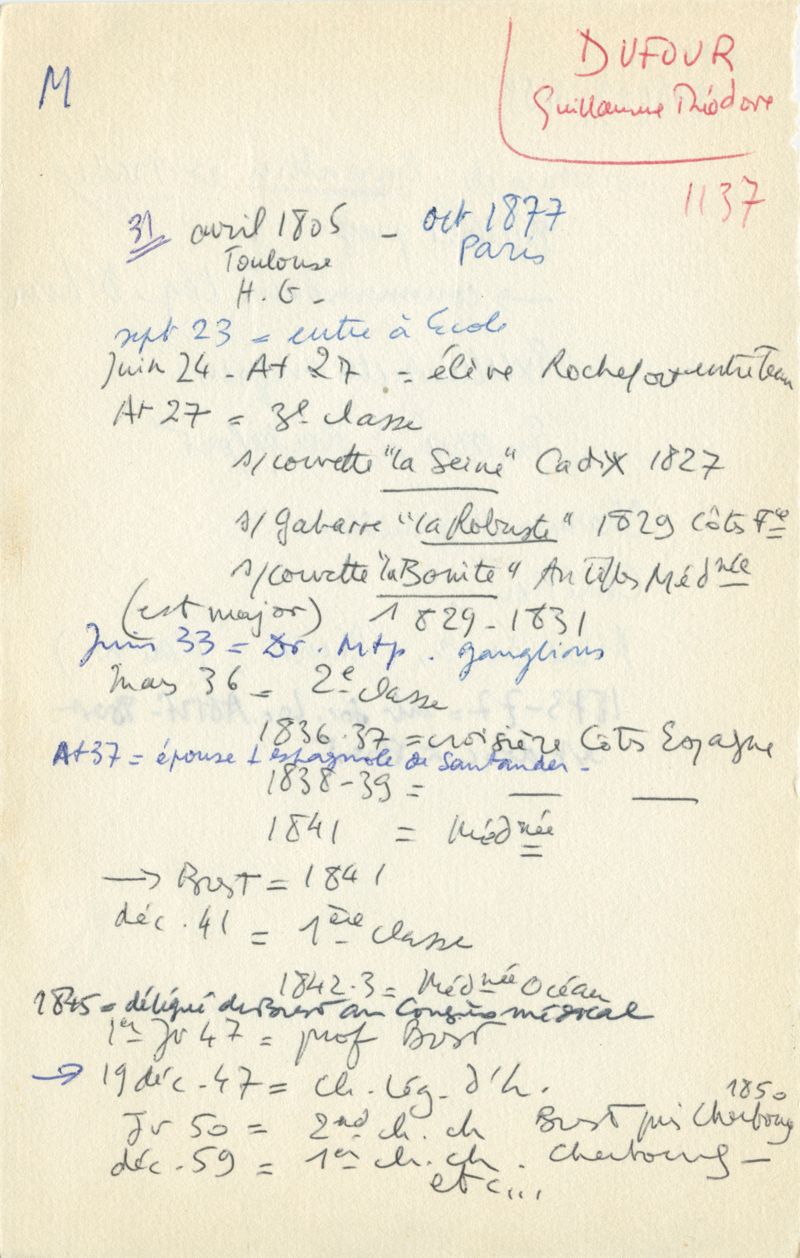 M
DUFOUR
Guillaume Théodore
1137
31 avril 1805 - oct 1877
Toulouse Paris
H.G -
sept 23 = entre à Ecole
Juin 24 - At 27 = élève Rochefort
At 27 = 3e classe
s/corvette "la Seine" Cadix 1827
s/Gabarre "la Robuste" 1829 Côts Fce
s/corvette "la Bonite" Antilles Médnée
(est major) 1829-1831
Juin 33 = Dr. Mtp. ganglions
Mars 36 = 2e classe
1836-37 = croisière Côts Espagne
At 37 = épouse 1 espagnole de Santander -
1838-39 = — —
1841 = Médnée
→ Brest = 1841
déc. 41 = 1ère classe
1842.3 = Médnée Océan
1845 = délégué de Brest au Congrès médical
1er Jr 47 = prof Brest
→ 19 déc. 47 = ch. Lég. d'h.
1850
Jr 50 = 2nd ch. ch Brest puis Cherbourg
déc. 59 = 1er ch. ch. Cherbourg -
etc...